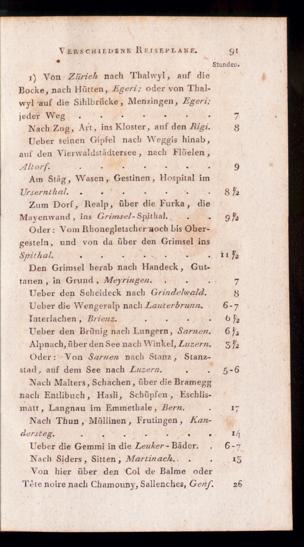 VERSCHIEDENE REISEPLANE. 91
Stunden.
1) Von Zürich nach Thalwyl, auf die
Bocke, nach Hütten, Egeri; oder von Thal-
wyl auf die Sihlbrücke, Menzingen, Egeri;
jeder Weg . . . . . . . 7
Nach Zug, Art, ins Kloster, auf den Rigi. 8
Ueber seinen Gipfel nach Weggis hinab,
auf den Vierwaldstädtersee, nach Flüelen,
Altorf. . . . . . . . 9
Am Stäg, Wasen, Gestinen, Hospital im
Ursernthal. . . . . . . . 8 1/2
Zum Dorf, Realp, über die Furka, die
Mayenwand, ins Grimsel-Spithal. . . 9 1/2
Oder: Vom Rhonegletscher noch bis Ober-
gesteln, und von da über den Grimsel ins
Spithal. . . . . . . . 11 1/2
Den Grimsel herab nach Handeck, Gut-
tanen, in Grund, Meyringen. . . . 7
Ueber den Scheideck nach Grindelwald. 8
Ueber die Wengeralp nach Lauterbrunn. 6-7
Interlachen, Brienz. . . . . 6 1/2
Ueber den Brünig nach Lungern, Sarnen. 6 1/2
Alpnach, über den See nach Winkel, Luzern. 3 1/2
Oder: Von Sarnen nach Stanz, Stanz-
stad, auf dem See nach Luzern. . . 5-6
Nach Malters, Schachen, über die Bramegg
nach Entlibuch, Hasli, Schüpfen, Eschlis-
matt, Langnau im Emmethale, Bern. . 17
Nach Thun, Müllinen, Frutingen, Kan-
dersteg. . . . . . . . 14
Ueber die Gemmi in die Leuker-Bäder. . 6-7
Nach Siders, Sitten, Martinach. . . 15
Von hier über den Col de Balme oder
Tête noire nach Chamouny, Sallenches, Genf. 26